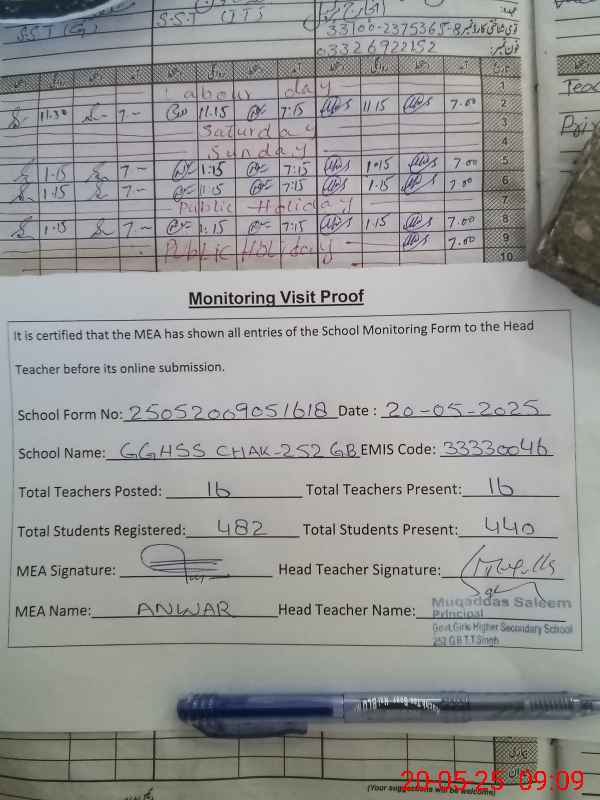 S.S.T (G) S.S.T (IT)
قومی شناختی کارڈ نمبر 33100-2375365-8
فون نمبر: 03326922152
1
Labour day
11.30 7 11.15 7:15 11.15 7.00 2
Saturday 3
Sunday 4
1.15 7 1:15 7:15 1.15 7.00 5
1.15 7 1:15 7:15 1.15 7.00 6
Public Holiday
1.15 7 1:15 7:15 1.15 7.00 8
Public Holiday 7.00 9
10
Monitoring Visit Proof
It is certified that the MEA has shown all entries of the School Monitoring Form to the Head
Teacher before its online submission.
School Form No: 25052009051618 Date : 20-05-2025
School Name: GGHSS CHAK-252 GB EMIS Code: 33330046
Total Teachers Posted: 16 Total Teachers Present: 16
Total Students Registered: 482 Total Students Present: 440
MEA Signature: Head Teacher Signature:
MEA Name: ANWAR Head Teacher Name:
Muqaddas Saleem
Principal
Govt, Girls Higher Secondary School
252 G.B T.T.Singh
(Your suggestions will be welcome)
20-05-25 09:09